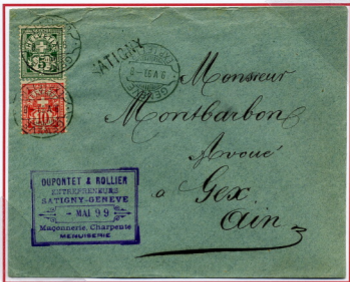 SATIGNY
HELVETIA
5
10
GENÈVE
Monsieur
Montbarbon
Avoué
à Gex
Ain
DUPONTET & ROLLIER
ENTREPRENEURS
SATIGNY-GENÈVE
- MAI 99
Maçonnerie, Charpente
MENUISERIE